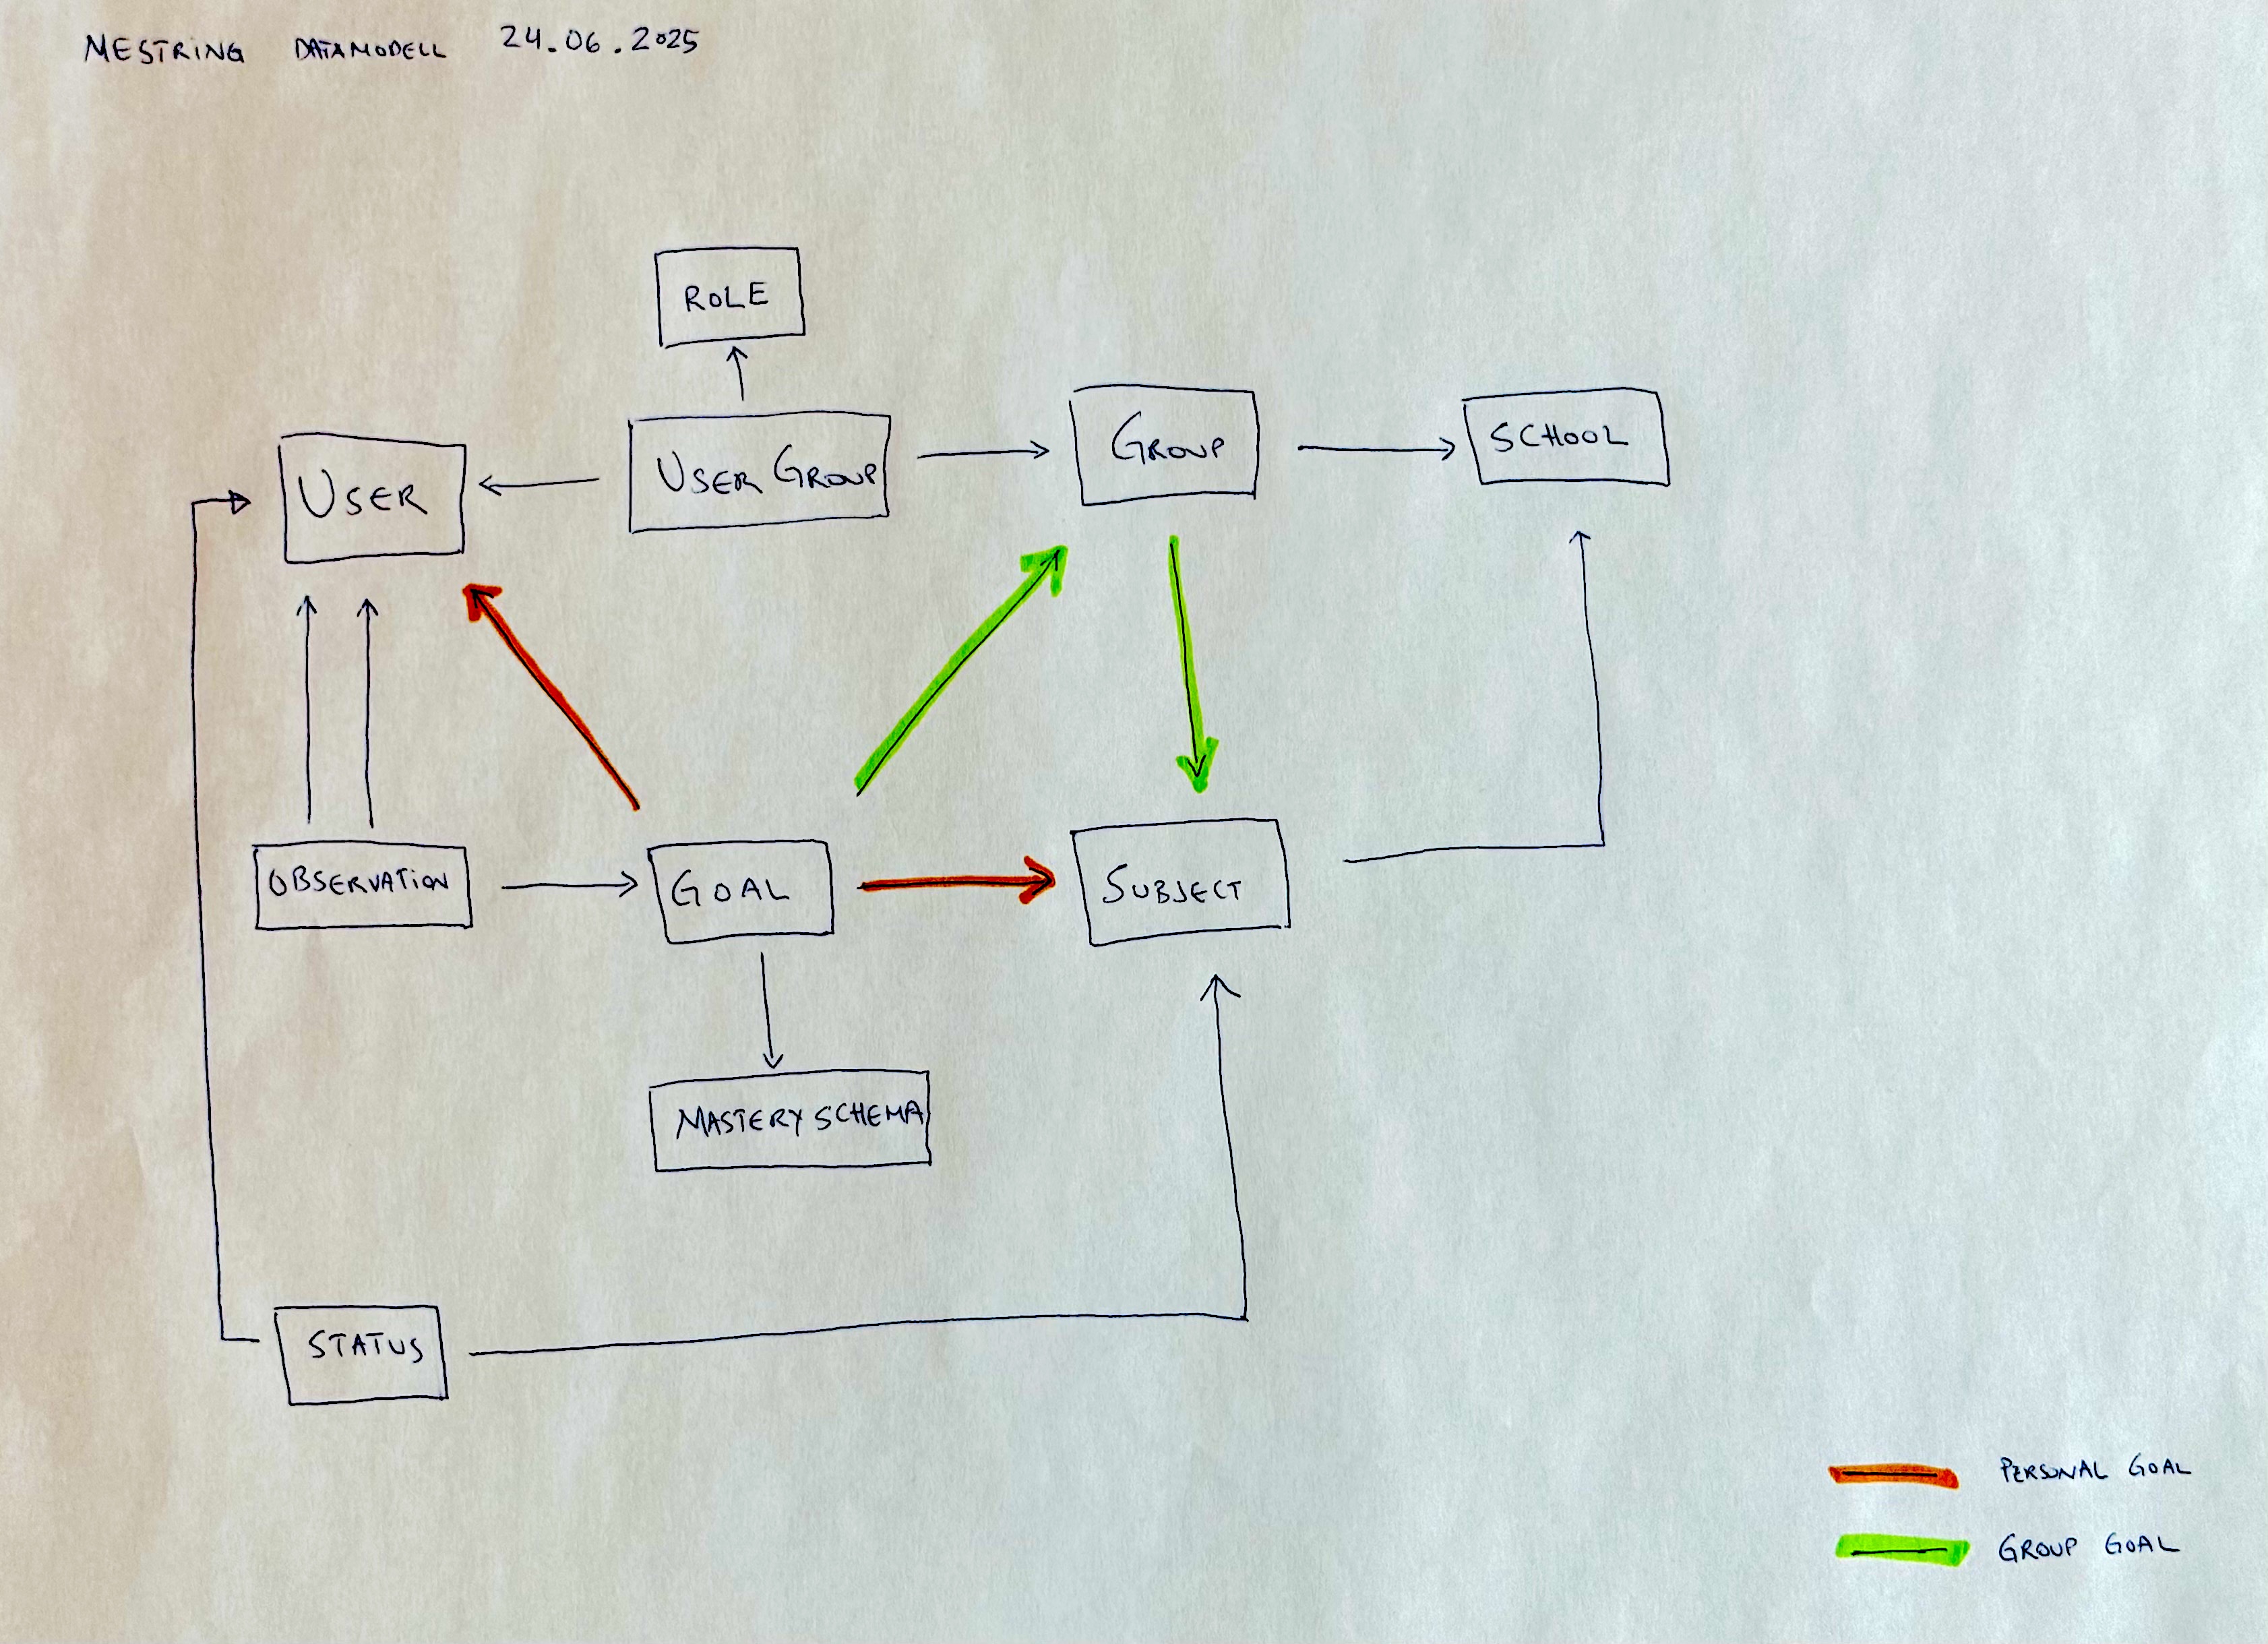 MESTRING DATAMODELL 24.06.2025
ROLE
USER
USER GROUP
GROUP
SCHOOL
OBSERVATION
GOAL
SUBJECT
MASTERY SCHEMA
STATUS
PERSONAL GOAL
GROUP GOAL